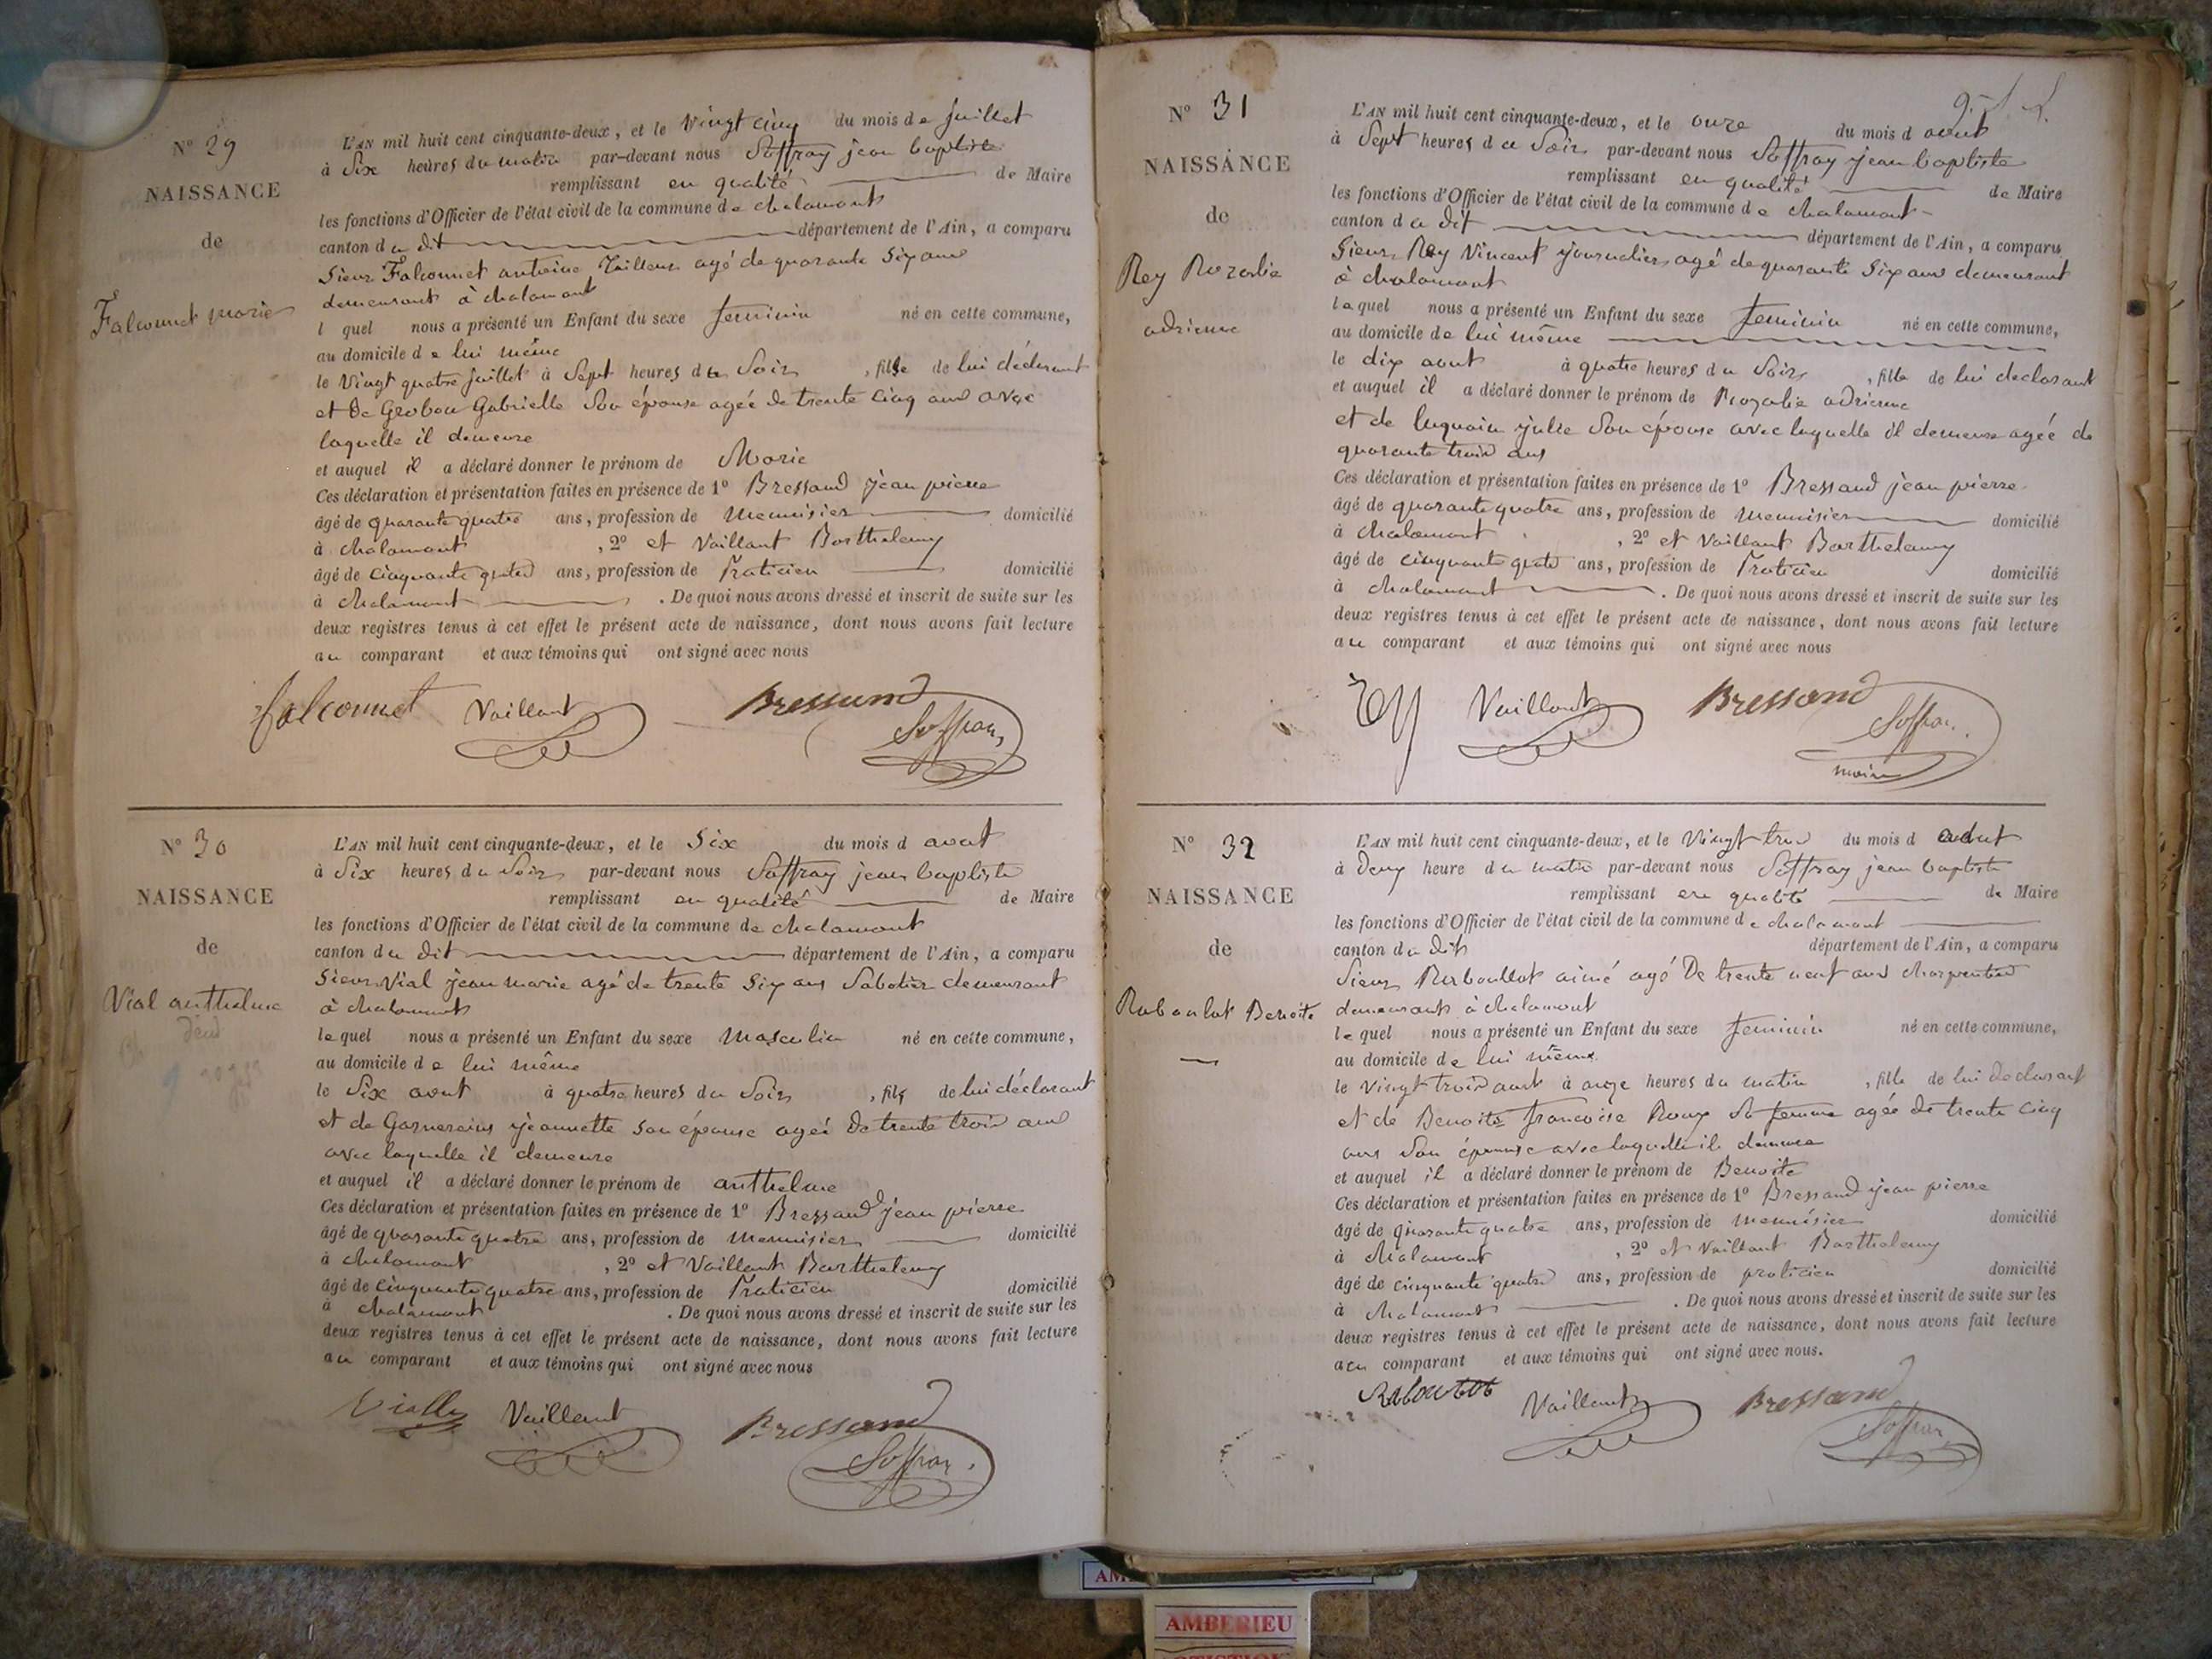 N° 29
NAISSANCE
de
Falconnet marie
L'AN mil huit cent cinquante-deux, et le Vingt cinq du mois de Juillet
à Six heures du matin par-devant nous Soffray jean baptiste
remplissant en qualité de Maire
les fonctions d'Officier de l'état civil de la commune de chalamont
canton du dit département de l'Ain, a comparu
Sieur Falconnet antoine Tailleur agé de quarante Six ans
demeurant à chalamont
l quel nous a présenté un Enfant du sexe feminin né en cette commune,
au domicile de lui même
le Vingt quatre Juillet à Sept heures du Soir, fille de lui déclarant
et de Grobon Gabrielle Son épouse agée de trente cinq ans avec
laquelle il demeure
et auquel il a déclaré donner le prénom de Marie
Ces déclaration et présentation faites en présence de 1° Bressand jean pierre
âgé de quarante quatre ans, profession de Menuisier domicilié
à chalamont, 2° et Vaillant Barthelemy
âgé de cinquante quatre ans, profession de Praticien domicilié
à chalamont. De quoi nous avons dressé et inscrit de suite sur les
deux registres tenus à cet effet le présent acte de naissance, dont nous avons fait lecture
au comparant et aux témoins qui ont signé avec nous
falconnet Vaillant Bressand
Soffray
N° 30
NAISSANCE
de
Vial anthelme
L'AN mil huit cent cinquante-deux, et le Six du mois d avout
à Six heures du Soir par-devant nous Soffray jean baptiste
remplissant en qualité de Maire
les fonctions d'Officier de l'état civil de la commune de chalamont
canton du dit département de l'Ain, a comparu
Sieur Vial jean marie agé de trente Six ans Sabotier demeurant
à chalamont
lequel nous a présenté un Enfant du sexe Masculin né en cette commune,
au domicile de lui même
le Six avout à quatre heures du Soir, fils de lui déclarant
et de Garnerains jeannette son épouse agée de trente trois ans
avec laquelle il demeure
et auquel il a déclaré donner le prénom de anthelme
Ces déclaration et présentation faites en présence de 1° Bressand jean pierre
âgé de quarante quatre ans, profession de Menuisier domicilié
à chalamont, 2° et Vaillant Barthelemy
âgé de cinquante quatre ans, profession de Praticien domicilié
à chalamont. De quoi nous avons dressé et inscrit de suite sur les
deux registres tenus à cet effet le présent acte de naissance, dont nous avons fait lecture
au comparant et aux témoins qui ont signé avec nous
Vialle Vaillant Bressand
Soffray
N° 31
NAISSANCE
de
Rey Rozalie
adrienne
L'AN mil huit cent cinquante-deux, et le onze du mois d avout
à Sept heures du Soir par-devant nous Soffray jean baptiste
remplissant en qualité de Maire
les fonctions d'Officier de l'état civil de la commune de chalamont
canton du dit département de l'Ain, a comparu
Sieur Rey Vincent journalier agé de quarante Six ans demeurant
à chalamont
lequel nous a présenté un Enfant du sexe feminin né en cette commune,
au domicile de lui même
le dix aout à quatre heures du Soir, fille de lui declarant
et auquel il a déclaré donner le prénom de Rozalie adrienne
et de luquain julie Son épouse avec laquelle il demeure agée de
quarante trois ans
Ces déclaration et présentation faites en présence de 1° Bressand jean pierre
âgé de quarante quatre ans, profession de menuisier domicilié
à chalamont, 2° et Vaillant Barthelemy
âgé de cinquante quatre ans, profession de Praticien domicilié
à chalamont. De quoi nous avons dressé et inscrit de suite sur les
deux registres tenus à cet effet le présent acte de naissance, dont nous avons fait lecture
au comparant et aux témoins qui ont signé avec nous
Rey Vaillant Bressand
Soffray
maire
N° 32
NAISSANCE
de
Raboulot Benoite
L'AN mil huit cent cinquante-deux, et le Vingt trois du mois d aout
à Deux heure du matin par-devant nous Soffray jean baptiste
remplissant en qualité de Maire
les fonctions d'Officier de l'état civil de la commune de chalamont
canton du dit département de l'Ain, a comparu
Sieur Raboullot aimé agé De trente neuf ans charpentier
demeurant à chalamont
lequel nous a présenté un Enfant du sexe feminin né en cette commune,
au domicile de lui même
le Vingt trois aout à onze heures du matin, fille de lui declarant
et de Benoite francoise Roux Sa femme agée de trente cinq
ans Son épouse avec laquelle il demeure
et auquel il a déclaré donner le prénom de Benoite
Ces déclaration et présentation faites en présence de 1° Bressand jean pierre
âgé de quarante quatre ans, profession de menuisier domicilié
à chalamont, 2° et Vaillant Barthelemy
âgé de cinquante quatre ans, profession de praticien domicilié
à chalamont. De quoi nous avons dressé et inscrit de suite sur les
deux registres tenus à cet effet le présent acte de naissance, dont nous avons fait lecture
au comparant et aux témoins qui ont signé avec nous.
Raboulot Vaillant Bressand
Soffray
AMBERIEU